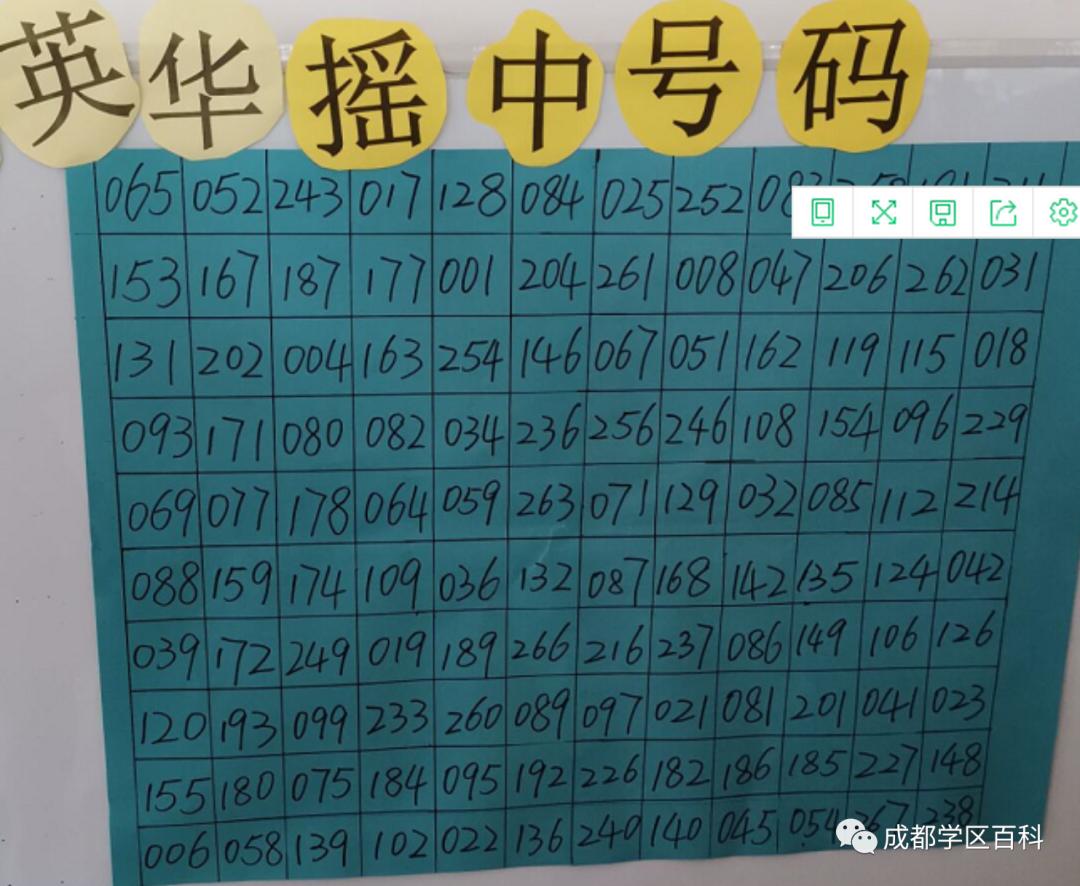 英华摇中号码
065 052 243 017 128 084 025 252
153 167 187 177 001 204 261 008 047 206 262 031
131 202 004 163 254 146 067 051 162 119 115 018
093 171 080 082 034 236 256 246 108 154 096 229
069 077 178 064 059 263 071 129 032 085 112 214
088 159 174 109 036 132 087 168 142 135 124 042
039 172 249 019 189 266 216 237 086 149 106 126
120 193 099 233 260 089 097 021 081 201 041 023
155 180 075 184 095 192 226 182 186 185 227 148
006 058 139 102 022 136 240 140 045 054 267 238
成都学区百科